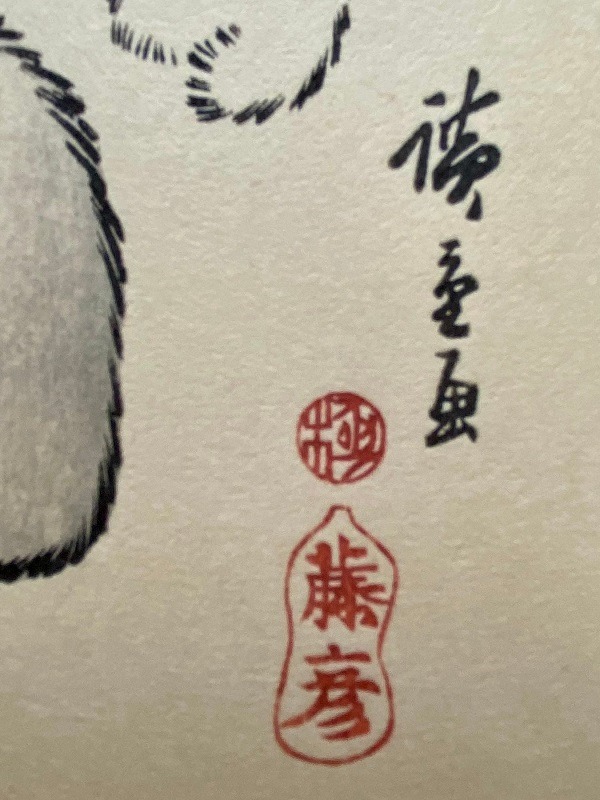 廣重画
極
藤彦